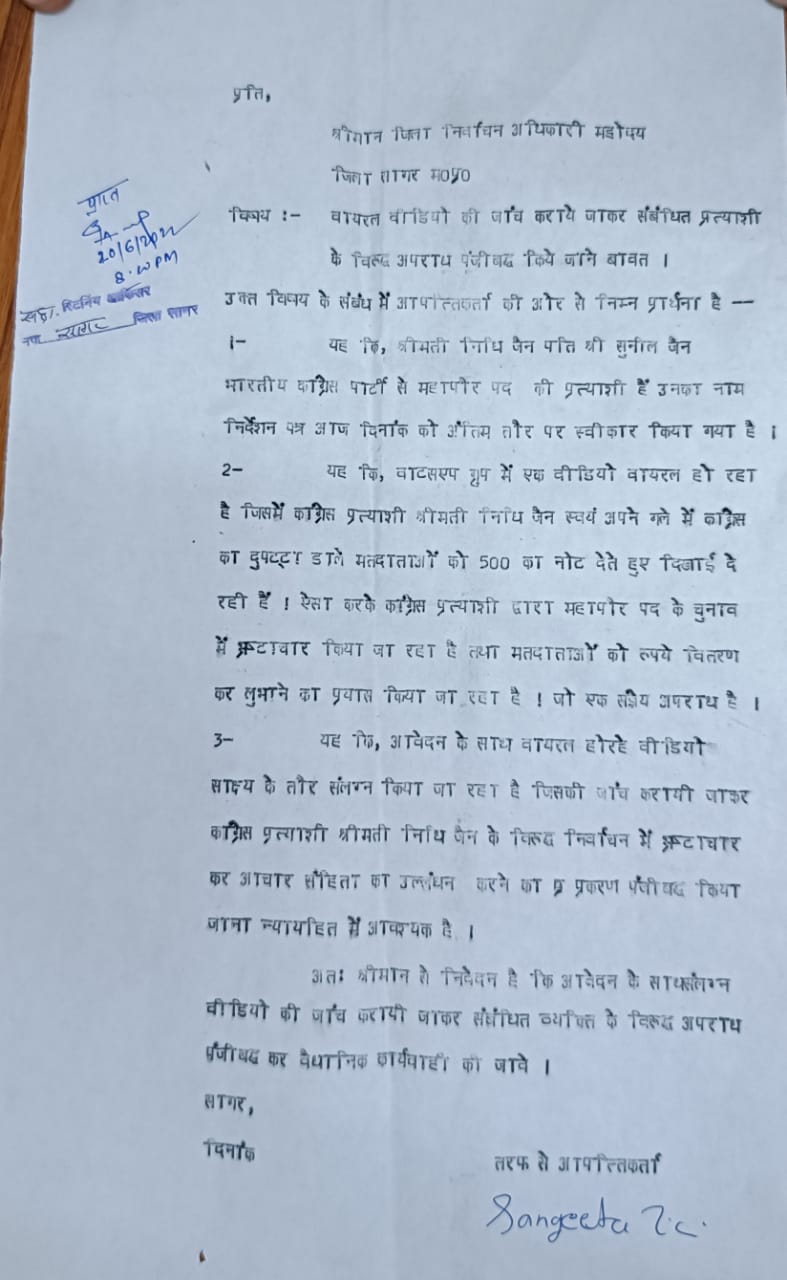 प्रति,
श्रीमान जिला निर्वाचन अधिकारी महोदय
जिला सागर म0प्र0
विषय :- वायरल वीडियो की जाँच कराये जाकर संबंधित प्रत्याशी
के विरूद्ध अपराध पंजीबद्ध किये जाने बावत ।
उक्त विषय के संबंध में आपत्तिकर्ता की ओर से निम्न प्रार्थना है --
1- यह कि, श्रीमती निधि जैन पति श्री सुनील जैन
भारतीय काग्रेस पार्टी से महापौर पद की प्रत्याशी हैं उनका नाम
निर्देशन पत्र आज दिनांक को अंतिम तौर पर स्वीकार किया गया है ।
2- यह कि, वाटसएप ग्रुप में एक वीडियो वायरल हो रहा
है जिसमें काग्रेस प्रत्याशी श्रीमती निधि जैन स्वयं अपने गले में काग्रेस
का दुपट्टा डाले मतदाताओं को 500 का नोट देते हुए दिखाई दे
रही हैं ! ऐसा करके काग्रेस प्रत्याशी द्वारा महापौर पद के चुनाव
में भ्रष्टाचार किया जा रहा है तथा मतदाताओं को रूपये वितरण
कर लुभाने का प्रयास किया जा रहा है ! जो एक संज्ञेय अपराध है ।
3- यह कि, आवेदन के साथ वायरल होरहे वीडियो
साक्ष्य के तौर संलग्न किया जा रहा है जिसकी जांच करायी जाकर
काग्रेस प्रत्याशी श्रीमती निधि जैन के विरूद्ध निर्वाचन में भ्रष्टाचार
कर आचार संहिता का उल्लंघन करने का प्र प्रकरण पंजीबद्ध किया
जाना न्यायहित में आवश्यक है ।
अतः श्रीमान से निवेदन है कि आवेदन के साथसंलग्न
वीडियो की जांच करायी जाकर संबंधित व्यक्ति के विरूद्ध अपराध
पंजीबद्ध कर वैधानिक कार्यवाही की जावे ।
सागर,
दिनांक
तरफ से आपत्तिकर्ता
Sangeeta
प्राप्त
20/6/2022
PM
सहा. रिटर्निंग आफिसर
सागर जिला सागर